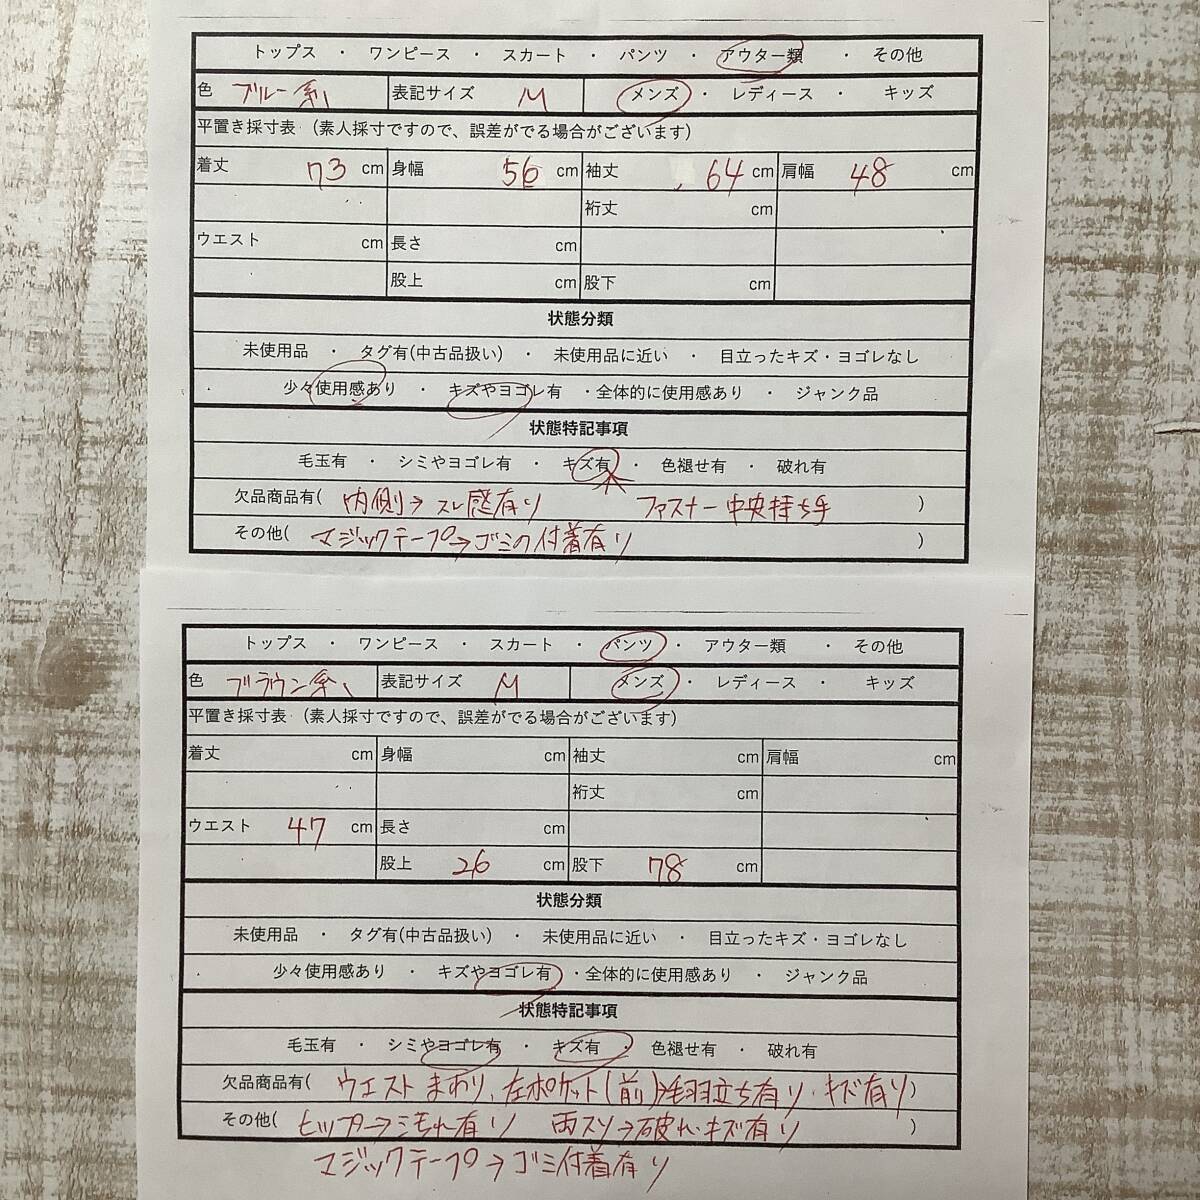 トップス ・ ワンピース ・ スカート ・ パンツ ・ アウター類 ・ その他
色 ブルー系 表記サイズ M メンズ ・ レディース ・ キッズ
平置き採寸表 (素人採寸ですので、誤差がでる場合がございます)
着丈 73 cm 身幅 56 cm 袖丈 64 cm 肩幅 48 cm
裄丈 cm
ウエスト cm 長さ cm
股上 cm 股下 cm
状態分類
未使用品 ・ タグ有(中古品扱い) ・ 未使用品に近い ・ 目立ったキズ・ヨゴレなし
少々使用感あり ・ キズやヨゴレ有 ・全体的に使用感あり ・ ジャンク品
状態特記事項
毛玉有 ・ シミやヨゴレ有 ・ キズ有 ・ 色褪せ有 ・ 破れ有
欠品商品有( 内側→スレ感有り ファスナー中央持ち手 )
その他( マジックテープ→ゴミの付着有り )
トップス ・ ワンピース ・ スカート ・ パンツ ・ アウター類 ・ その他
色 ブラウン系 表記サイズ M メンズ ・ レディース ・ キッズ
平置き採寸表 (素人採寸ですので、誤差がでる場合がございます)
着丈 cm 身幅 cm 袖丈 cm 肩幅 cm
裄丈 cm
ウエスト 47 cm 長さ cm
股上 26 cm 股下 78 cm
状態分類
未使用品 ・ タグ有(中古品扱い) ・ 未使用品に近い ・ 目立ったキズ・ヨゴレなし
少々使用感あり ・ キズやヨゴレ有 ・全体的に使用感あり ・ ジャンク品
状態特記事項
毛玉有 ・ シミやヨゴレ有 ・ キズ有 ・ 色褪せ有 ・ 破れ有
欠品商品有( ウエストまわり、左ポケット(前)→毛羽立ち有り・キズ有り )
その他( ヒップ→汚れ有り 両スソ→破れ・キズ有り )
マジックテープ→ゴミ付着有り